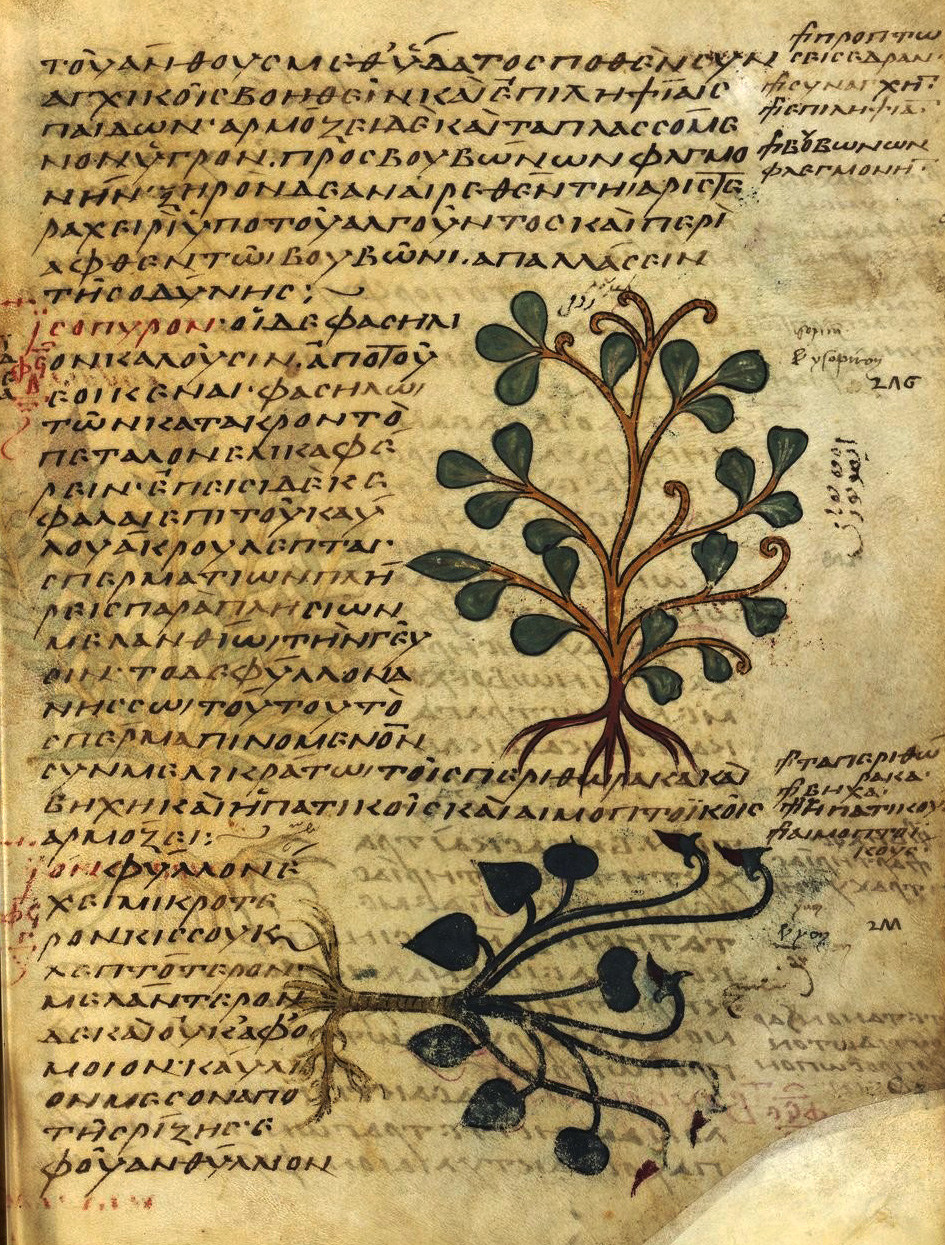 ΤΟΥ ΑΝΘΟΥΣ ΜΕΘ ΥΔΑΤΟΣ ΠΟΘΕΝ ΣΥΝ
ΑΓΧΙΚΟΙΣ ΒΟΗΘΕΙΝ ΚΑΙ ΕΠΙΛΗΨΙΑΙΣ
ΠΑΙΔΩΝ· ΑΡΜΟΖΕΙ ΔΕ ΚΑΙ ΤΑΠΛΑΣΣΟΜΕ
ΝΟΝ ΥΓΡΟΝ. ΠΡΟΣ ΒΟΥΒΩΝΩΝ ΦΛΓΜΟ
ΝΗΝ· ΞΗΡΟΝ ΔΕ ΑΝΑΙΡΕΘΕΝ ΤΗΙ ΑΡΙΣΤΕ
ΡΑ ΧΕΙΡΙ ΥΠΟ ΤΟΥ ΑΛΓΟΥΝΤΟΣ ΚΑΙ ΠΕΡΙ
ΑΦΘΕΝ ΤΩΙ ΒΟΥΒΩΝΙ. ΑΠΑΛΛΑΣΕΙΝ
ΤΗΣ ΟΔΥΝΗΣ:
ΙΣΟΠΥΡΟΝ· ΟΙ ΔΕ ΦΑΣΗΛΙ
ΟΝ ΚΑΛΟΥΣΙΝ. ΑΠΟ ΤΟΥ
ΕΟΙΚΕΝΑΙ· ΦΑΣΗΛΩΙ
ΤΩΝ ΚΑΤΑΚΡΟΝ ΤΟ
ΠΕΤΑΛΟΝ ΕΛΙΚΑ ΦΕ
ΡΕΙΝ· ΕΠΕΙΣΙ ΔΕ ΚΕ
ΦΑΛΑΙ ΕΠΙ ΤΟΥ ΚΑΥ
ΛΟΥ ΑΚΡΟΥ ΛΕΠΤΑΙ·
ΣΠΕΡΜΑΤΙΩΝ ΠΛΗ
ΡΕΙΣ ΠΑΡΑΠΛΗΣΙΩΝ
ΜΕΛΑΝΘΙΩΙ ΤΗΝ ΓΕΥ
ΣΙΝ· ΤΟ ΔΕ ΦΥΛΛΟΝ Α
ΝΗΣΣΩΙ ΤΟΥΤΟΥ ΤΟ
ΣΠΕΡΜΑ ΠΙΝΟΜΕΝΟΝ
ΣΥΝ ΜΕΛΙΚΡΑΤΩΙ ΤΟΙΣ ΠΕΡΙ ΘΩΡΑΚΑ ΚΑΙ
ΒΗΧΗ ΚΑΙ ΗΠΑΤΙΚΟΙΣ ΚΑΙ ΑΙΜΟΠΤΟΪΚΟΙΣ
ΑΡΜΟΖΕΙ:
ΙΟΝ ΦΥΛΛΟΝ Ε
ΧΕΙ ΜΙΚΡΟΤΕ
ΡΟΝ ΚΙΣΣΟΥ Κ
ΛΕΠΤΟΤΕΡΟΝ
ΜΕΛΑΝΤΕΡΟΝ
ΔΕ ΚΑΙ ΟΥΚ ΑΦΟ
ΜΟΙΟΝ· ΚΑΥΛΙ
ΟΝ ΜΕΣΟΝ ΑΠΟ
ΤΗΣ ΡΙΖΗΣ· Ε
ΦΟΥ ΑΝΘΥΛΛΙΟΝ
ΠΡΟΠΤΩ
ΣΕΙΣ ΕΔΡΑΝ·
ΣΥΝΑΓΧΗ·
ΕΠΙΛΗΨΙΑ·
ΒΟΥΒΩΝΩΝ
ΦΛΕΓΜΟΝΗ·
ΤΑ ΠΕΡΙ ΘΩ
ΡΑΚΑ·
ΒΗΧΑ·
ΗΠΑΤΙΚΟΥ
ΑΙΜΟΠΤΟΙ
ΚΟΥΣ·